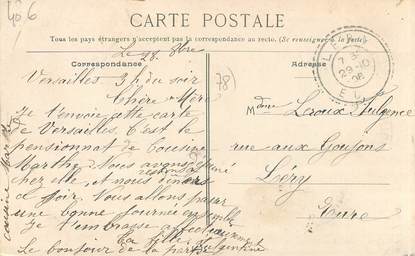 CARTE POSTALE
Tous les pays étrangers n'acceptent pas la correspondance au recto. (Se renseigner à la poste)
Correspondance
Adresse
Le 28 8bre
Versailles 3 h du soir
78
Chère Mère
Je t'envoie cette carte
de Versailles. C'est le
pensionnat de cousine
Marthe. Nous avons déjeuné
chez elle, et nous dînons
ce soir. Nous allons passer
une bonne journée ensemble
Je t'embrasse affectueusement
Ta fille
Le bonjour de la part
cousine Marthe
LÉRY
29
EURE
Mme Leroux Fulgence
rue aux Goujons
Léry
Eure